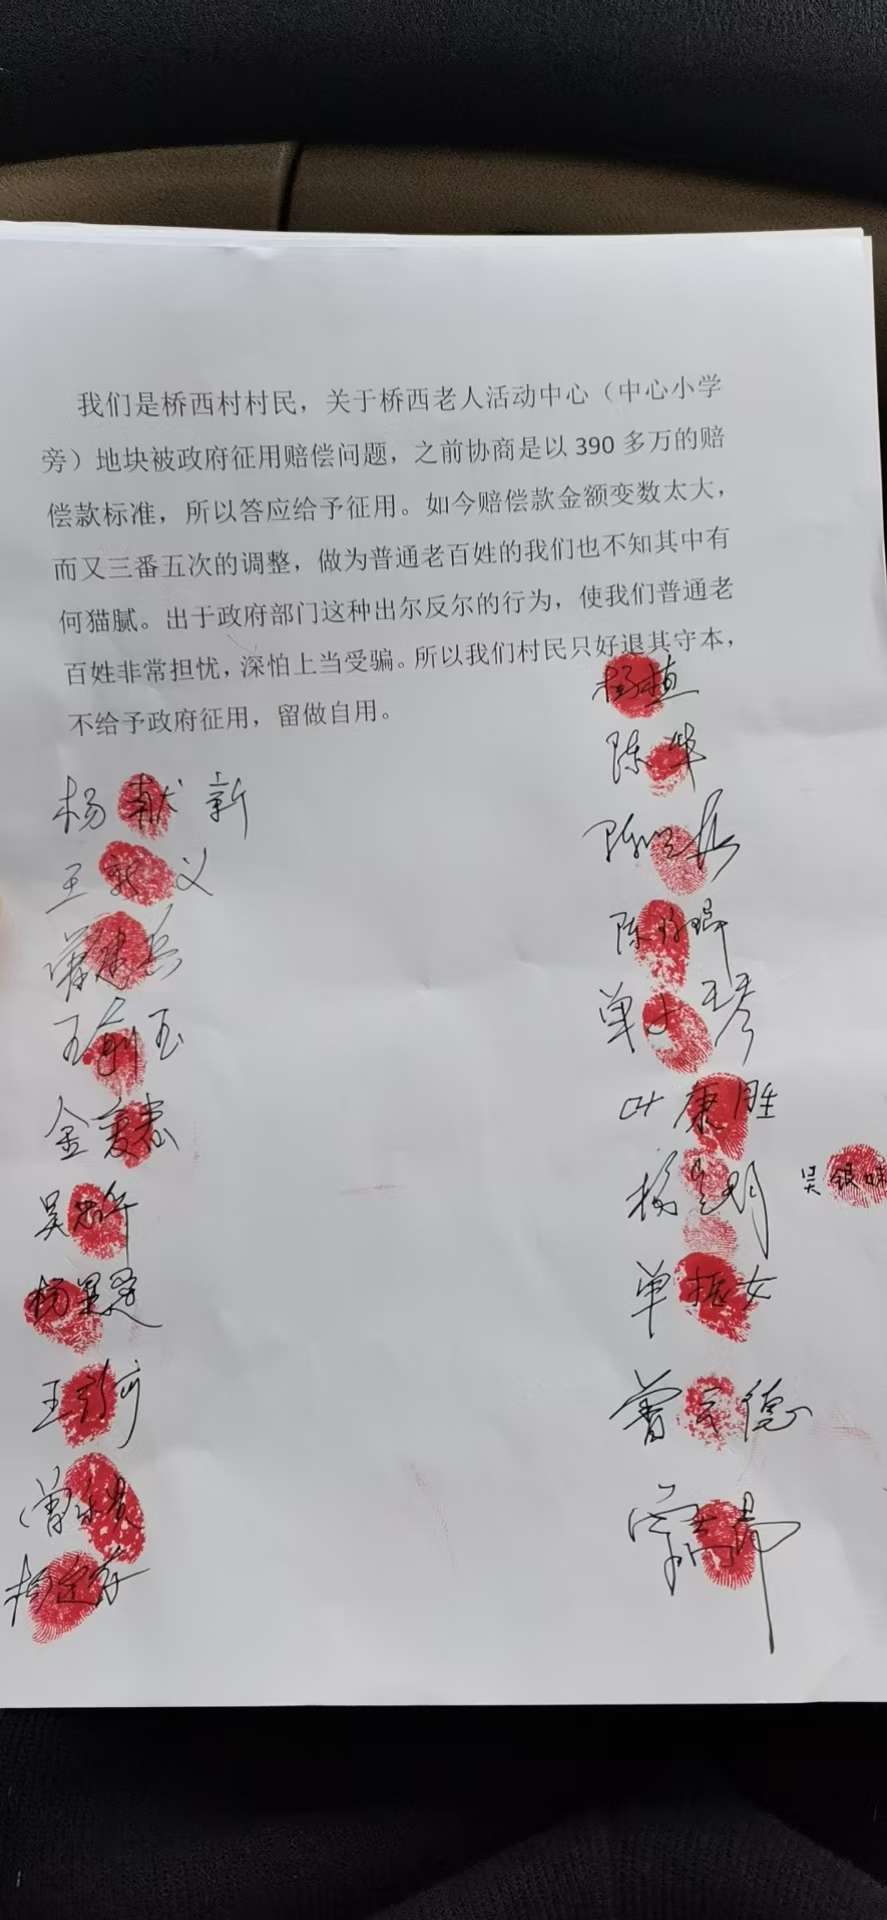 我们是桥西村村民，关于桥西老人活动中心（中心小学
旁）地块被政府征用赔偿问题，之前协商是以 390 多万的赔
偿款标准，所以答应给予征用。如今赔偿款金额变数太大，
而又三番五次的调整，做为普通老百姓的我们也不知其中有
何猫腻。出于政府部门这种出尔反尔的行为，使我们普通老
百姓非常担忧，深怕上当受骗。所以我们村民只好退其守本，
不给予政府征用，留做自用。
杨献新
王 义
王 玉
金
吴
杨
王
曾
杨
杨植
陈华
陈
陈
单 琴
叶康胜
杨 明
吴银妹
单振女
曾 德